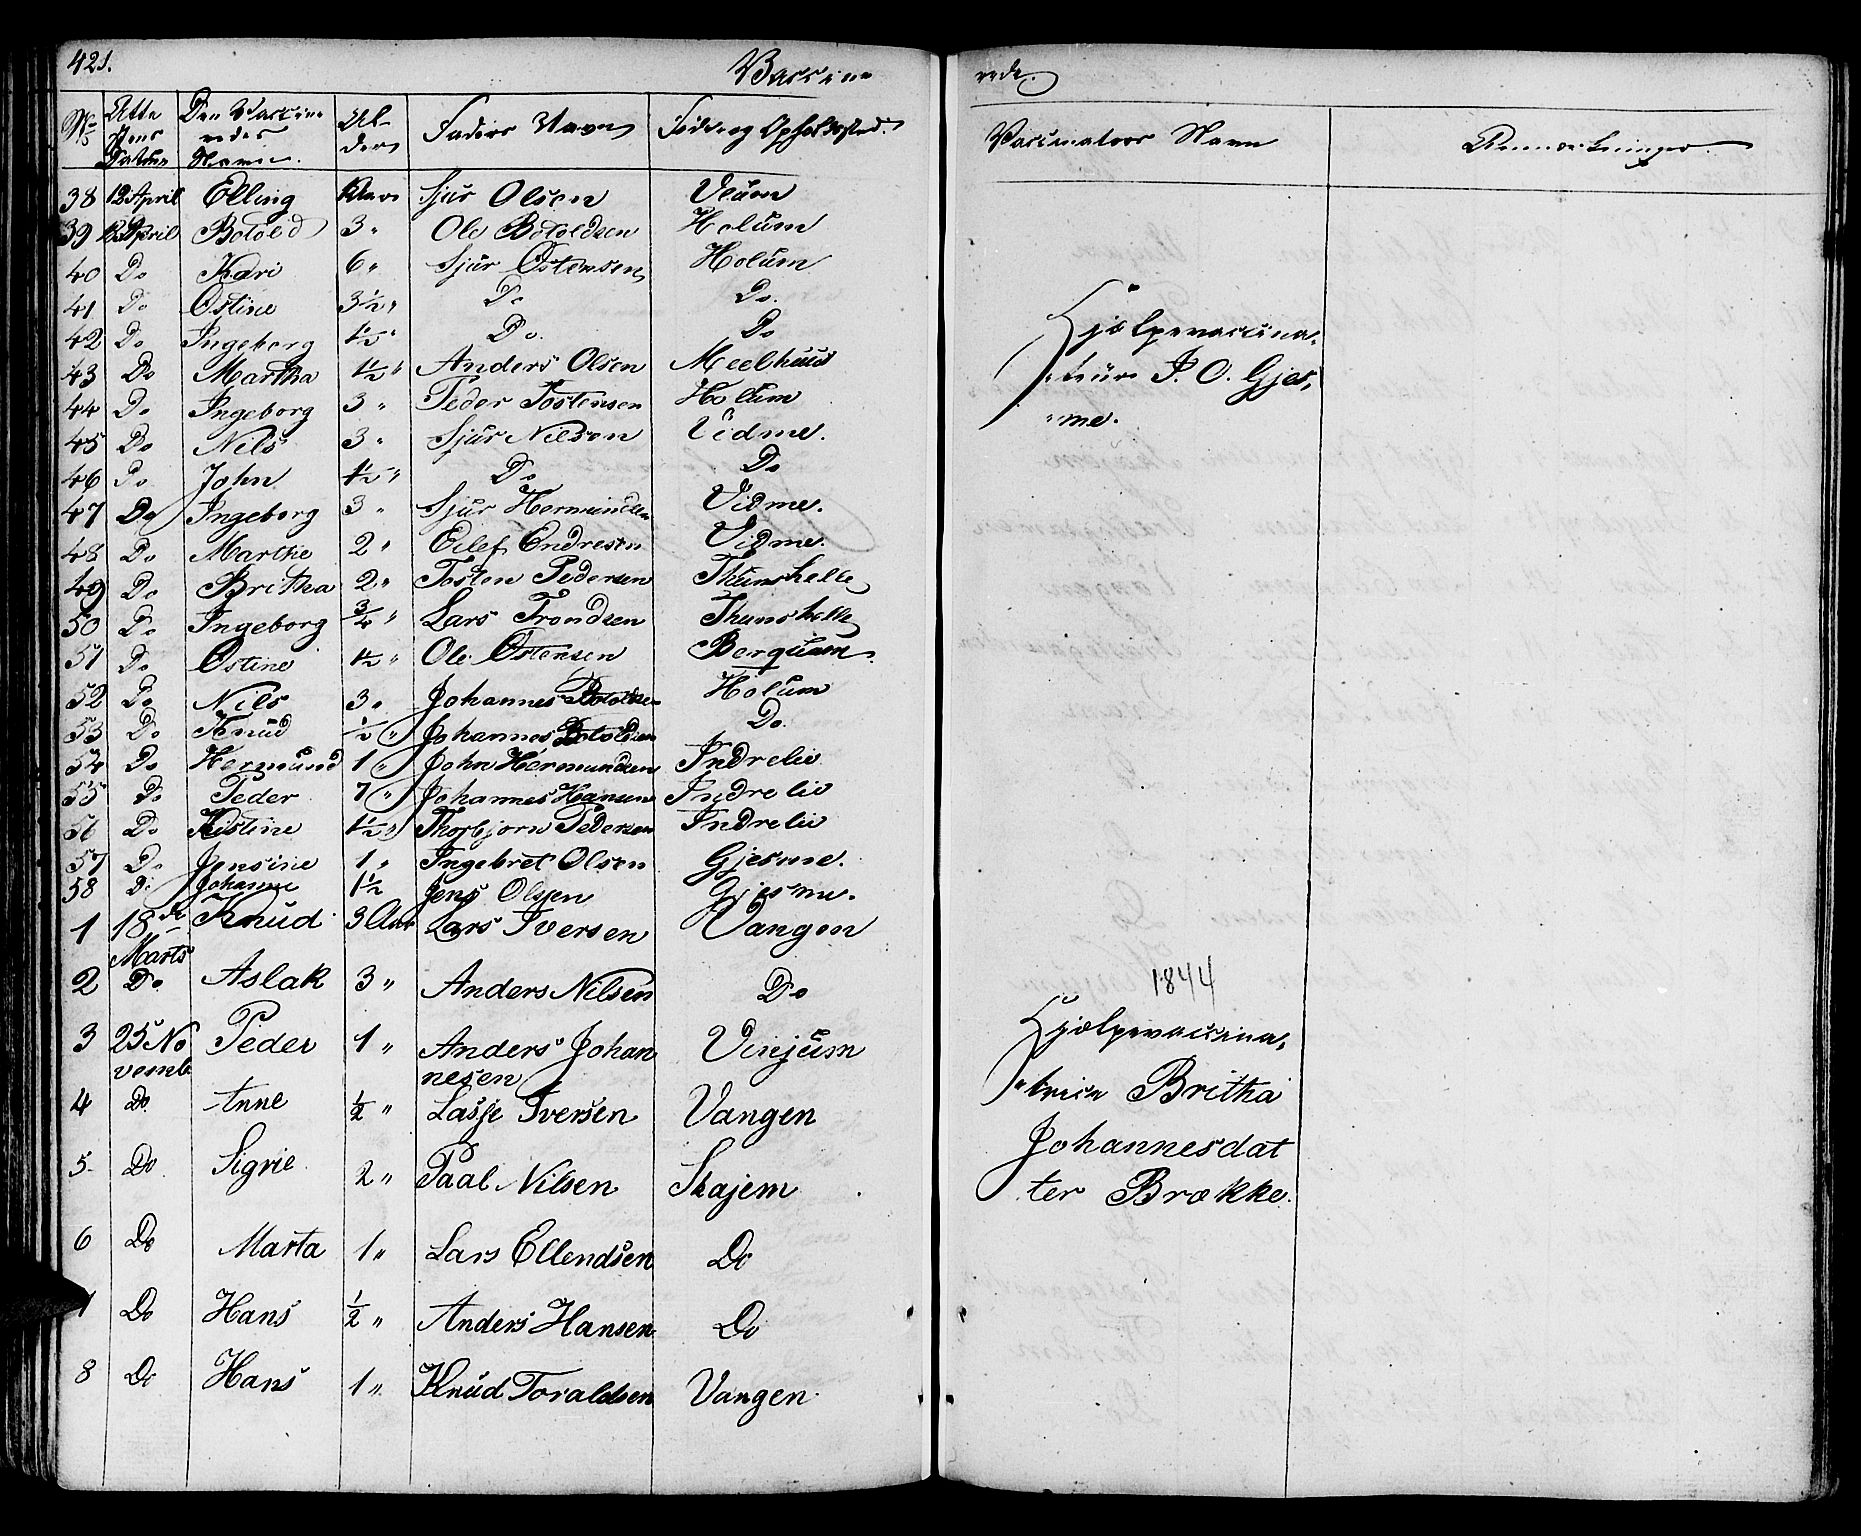 421. Vaccine rede.
No Atte stens Datum Den Vaccine redes Navn. Al- der Faders Navn Føde og Opholdssted. Vaccinateurs Navn Anmærkninger.
38 12 April Elling Sjur Olsen Venum
39 12 April Botold 3 " Ole Botoldsen Holum
40 Do Kari 6 " Sjur Østensen Holum
41 Do Østine 3½ " Do Do.
42 Do Ingeborg 1½ " Do. Do
43 Do Martha 1½ " Anders Olsen Meelhuus
44 Do Ingeborg 3 " Peder Tostensen Holum
45 Do Nils 3 " Sjur Nilson Vidme.
46 Do John 1½ " Do Do
47 Do Ingeborg 3 " Sjur Hermundsen Vidme.
48 Do Marthe 2 " Eilef Endresen Vidme.
49 Do Britha 2 " Tosten Pedersen Thunshelle
50 Do Ingeborg ¾ " Lars Trondsen Thunshelle
51 Do Østine 1½ " Ole Østensen Berquam.
52 Do Nils 3 " Johannes Botoldsen Holum
53 Do Knud ½ " Johannes Botoldsen Do.
54 Do Hermund 1 " John Hermundsen Indrelie
55 Do Peder 7 " Johannes Hansen Indrelie
56 Do Kistine 1½ " Thorbjorn Pedersen Indrelie
57 Do Jensine 1 " Ingebret Olsen Gjesme.
58 Do Johanne 1½ Jens Olsen Gjesme.
Hjelpevaccina-
teur J. O. Gjes-
me.
1 18de Marts Knud 3 Aar Lars Iversen Vangen
2 Do Aslak 3 " Anders Nilsen Do
3 25 No vemb. Peder 1 " Anders Johan nesen Vinjum
4 Do Anne ½ " Lasse Iversen Vangen
5 Do Sigrie 2 " Paal Nilsen Skajem
6 Do Marta 1 " Lars Ellendsen Do
7 Do Hans ½ " Anders Hansen Do
8 Do Hans 1 " Knud Toraldsen Vangen
1844
Hjælpevaccina-
trice Britha
Johannesdat
ter Brække.